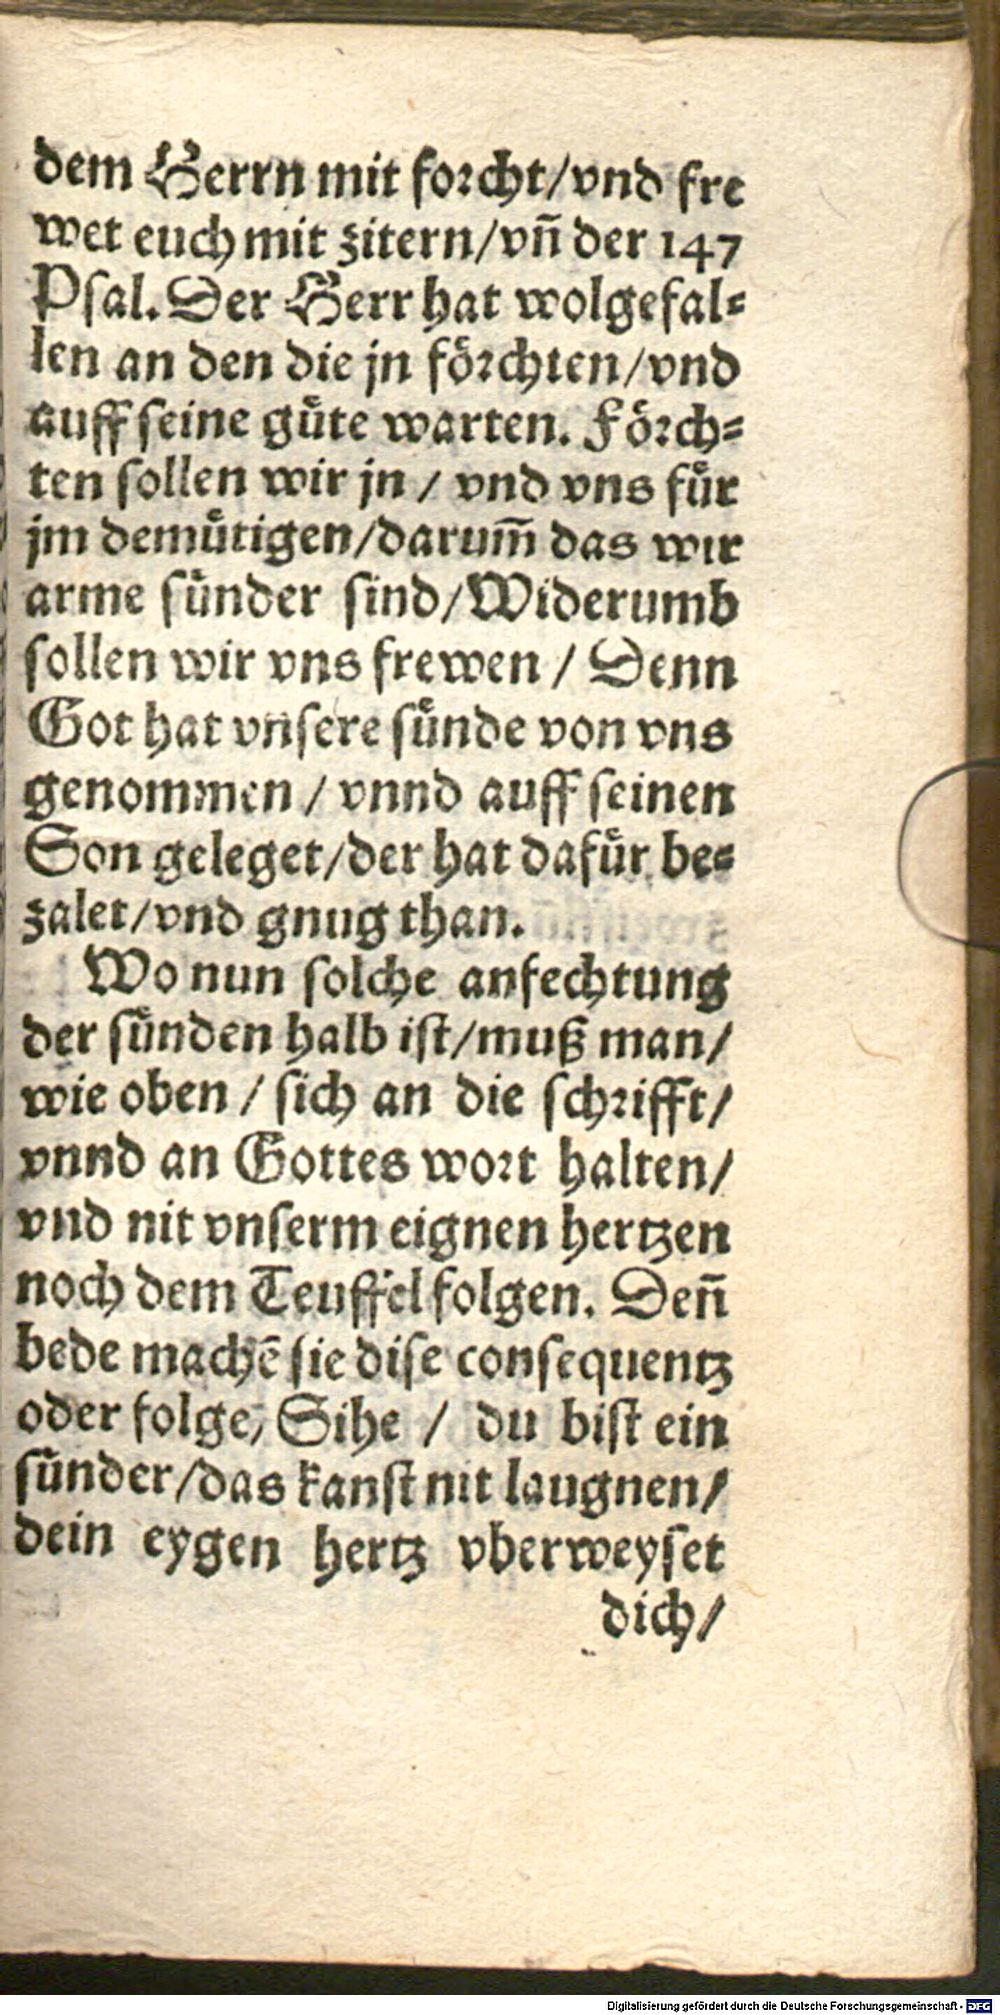 dem Herrn mit forcht/vnd fre
wet euch mit zitern/vn̄ der 147
Psal. Der Herr hat wolgefal⸗
len an den die jn foͤrchten/vnd
auff seine guͤte warten. Foͤrch⸗
ten sollen wir jn / vnd vns fuͤr
jm demuͤtigen/darum̄ das wir
arme suͤnder sind/Widerumb
sollen wir vns frewen / Denn
Got hat vnsere suͤnde von vns
genommen / vnnd auff seinen
Son geleget/der hat dafuͤr be⸗
zalet/vnd gnug than.
Wo nun solche anfechtung
der suͤnden halb ist/muß man/
wie oben / sich an die schrifft/
vnnd an Gottes wort halten/
vnd nit vnserm eignen hertzen
noch dem Teuffel folgen. Den̄
bede machē sie dise consequentz
oder folge, Sihe / du bist ein
suͤnder/das kanst nit laugnen/
dein eygen hertz vberweyset
dich/
Digitalisierung gefördert durch die Deutsche Forschungsgemeinschaft - DFG